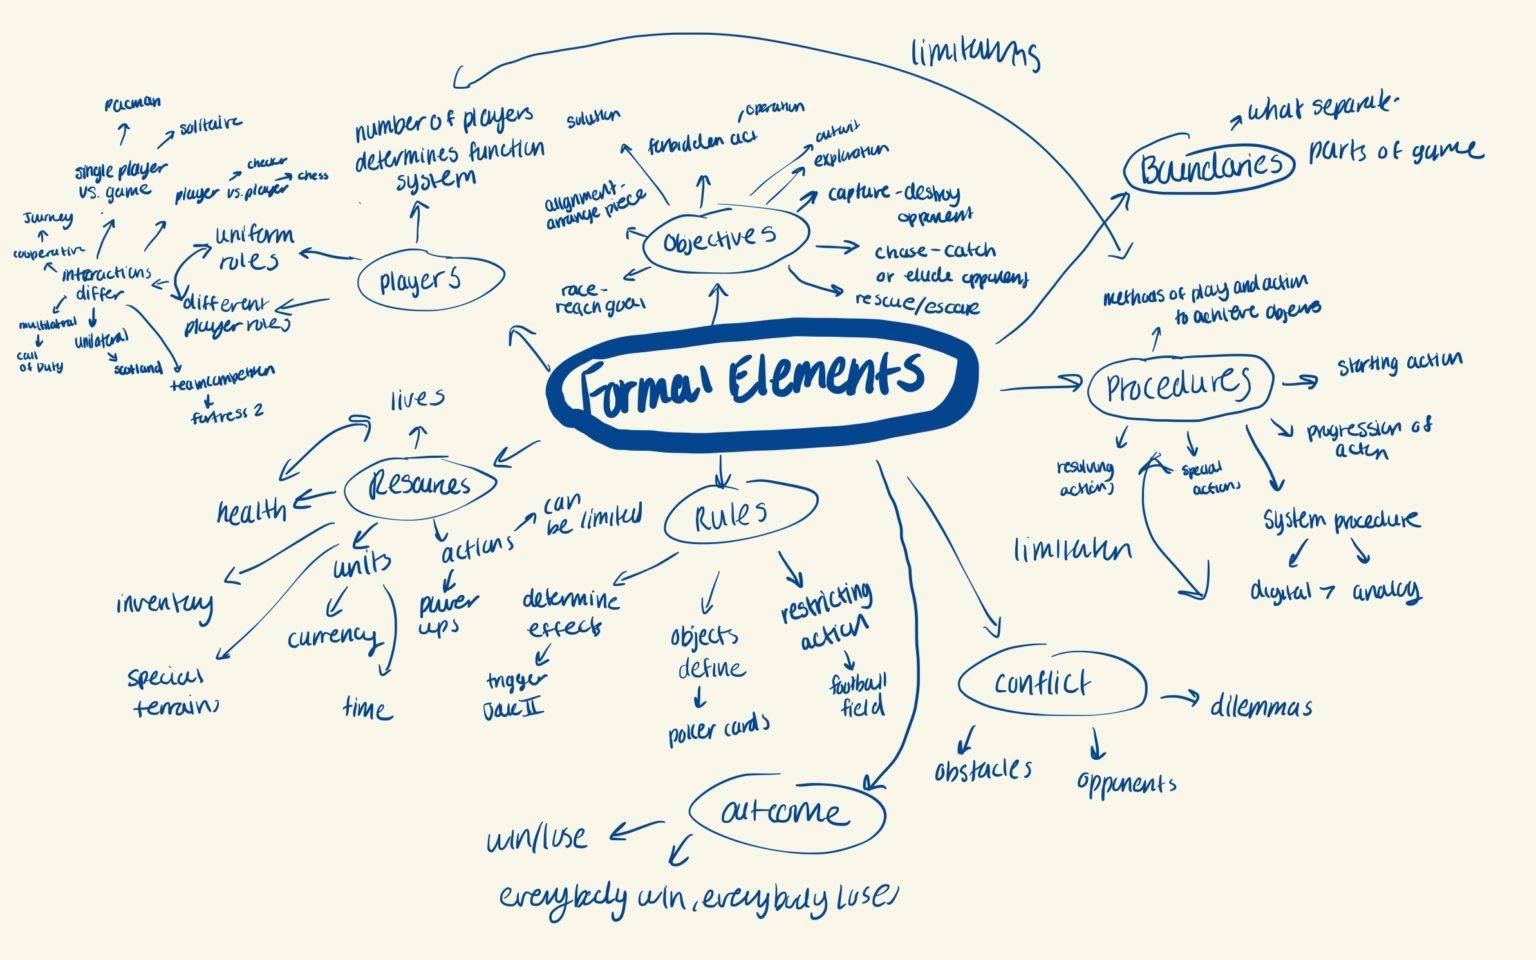 limitations
number of players
determines function
system
players
uniform
roles
different
player roles
interactions
differ
single player
vs. game
pacman
solitaire
player vs. player
checker
chess
cooperative
Journey
multilateral
call
of Duty
unilateral
scotland
team competition
fortress 2
Objectives
solution
forbidden act
operation
outwit
exploration
alignment-
arrange piece
race-
reach goal
capture-destroy
opponent
chase-catch
or elude opponent
rescue/escape
Boundaries
what separate
parts of game
Formal Elements
Procedures
methods of play and action
to achieve
starting action
progression of
action
resolving
actions
special
actions
System procedure
digital > analog
limitation
Resources
lives
health
inventory
special
terrains
units
currency
time
actions
can
be limited
power
ups
Rules
determine
effects
trigger
objects
define
poker cards
restricting
action
football
field
conflict
obstacles
opponents
dilemmas
outcome
win/lose
everybody win, everybody loses